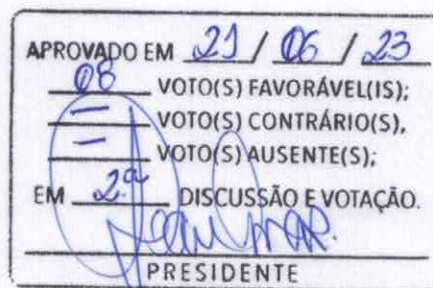 APROVADO EM 21 / 06 / 23
08 VOTO(S) FAVORÁVEL(IS);
— VOTO(S) CONTRÁRIO(S),
— VOTO(S) AUSENTE(S);
EM 2ª DISCUSSÃO E VOTAÇÃO.
PRESIDENTE